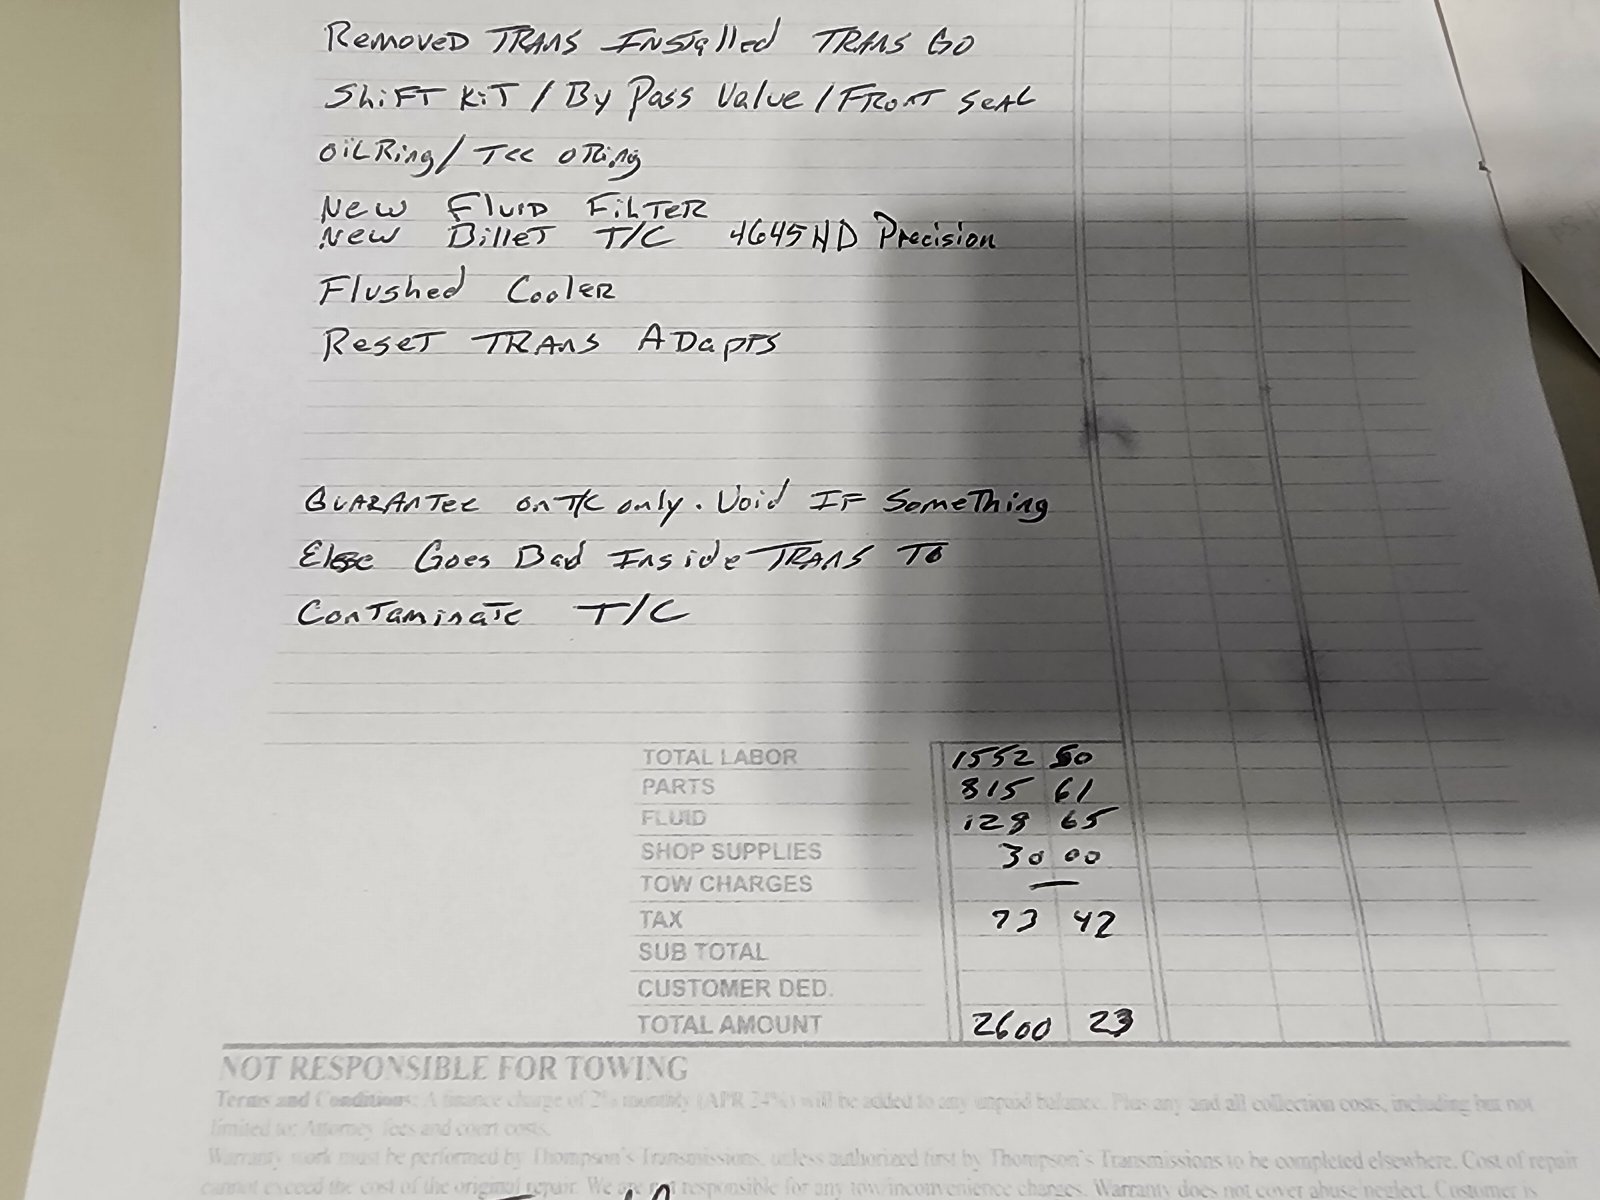 Removed TRANS Installed TRANS GO
Shift Kit / By Pass Value / Front Seal
Oil Ring / Tcc O Ring
New Fluid Filter
New Billet T/C 4645HD Precision
Flushed Cooler
Reset TRANS Adapts
Guarantee on T/C only. Void If Something
Else Goes Bad Inside TRANS To
Contaminate T/C
TOTAL LABOR 1552 50
PARTS 815 61
FLUID 128 65
SHOP SUPPLIES 30 00
TOW CHARGES —
TAX 73 42
SUB TOTAL
CUSTOMER DED.
TOTAL AMOUNT 2600 23
NOT RESPONSIBLE FOR TOWING
Terms and Conditions: A finance charge of 2% monthly (APR 24%) will be added to any unpaid balance. Plus any and all collection costs, including but not
limited to: Attorney fees and court costs.
Warranty work must be performed by Thompson's Transmissions, unless authorized first by Thompson's Transmissions to be completed elsewhere. Cost of repair
cannot exceed the cost of the original repair. We are not responsible for any tow/inconvenience charges. Warranty does not cover abuse/neglect. Customer is